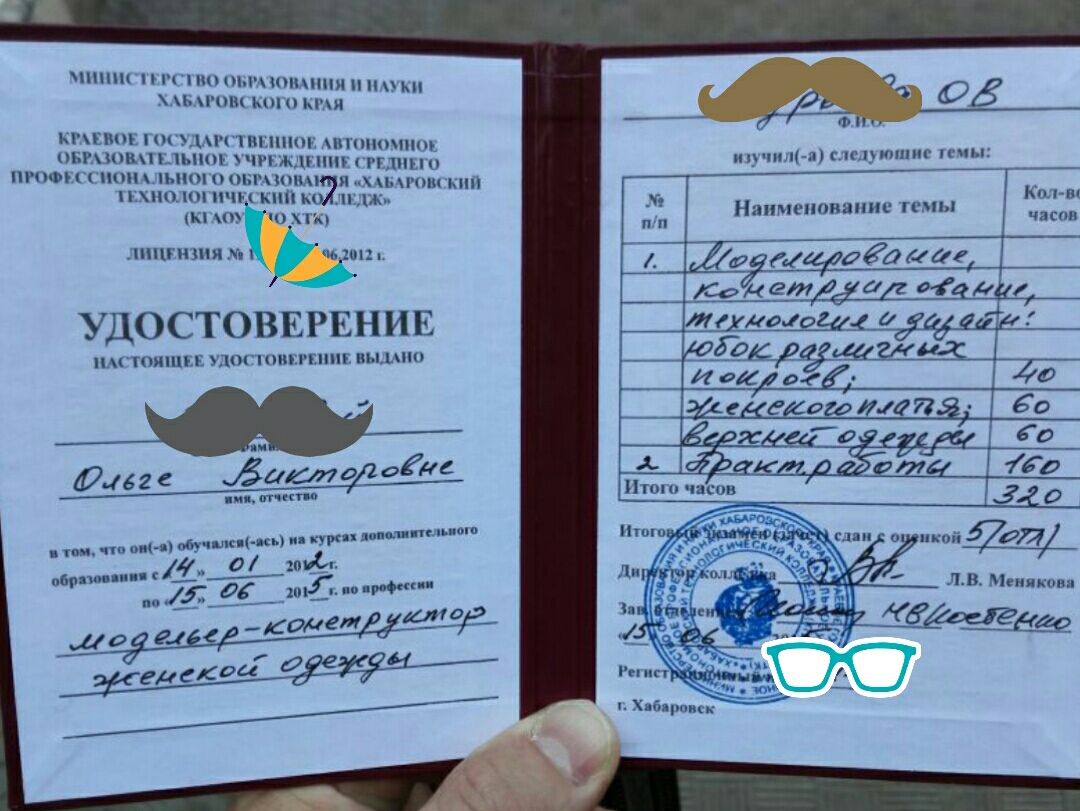 МИНИСТЕРСТВО ОБРАЗОВАНИЯ И НАУКИ
ХАБАРОВСКОГО КРАЯ
КРАЕВОЕ ГОСУДАРСТВЕННОЕ АВТОНОМНОЕ
ОБРАЗОВАТЕЛЬНОЕ УЧРЕЖДЕНИЕ СРЕДНЕГО
ПРОФЕССИОНАЛЬНОГО ОБРАЗОВАНИЯ «ХАБАРОВСКИЙ
ТЕХНОЛОГИЧЕСКИЙ КОЛЛЕДЖ»
(КГАОУ ХТК)
ЛИЦЕНЗИЯ № 06.2012 г.
УДОСТОВЕРЕНИЕ
НАСТОЯЩЕЕ УДОСТОВЕРЕНИЕ ВЫДАНО
Ольге Викторовне
имя, отчество
в том, что он(-а) обучался(-ась) на курсах дополнительного
образования с «14» 01 2012 г.
по «15» 06 2015 г. по профессии
модельер-конструктор
женской одежды
ОВ
Ф.И.О.
изучил(-а) следующие темы:
№ п/п Наименование темы Кол-во часов
1. Моделирование,
конструирование,
технология и дизайн:
юбок различных
покроев; 40
женского платья; 60
верхней одежды 60
2 Практ.работы 160
Итого часов 320
Итоговый экзамен (зачет) сдан с оценкой 5(отл)
Директор колледжа Л.В. Менякова
Зав. отделением НВКостенко
«15 06
Регистрационный
г. Хабаровск